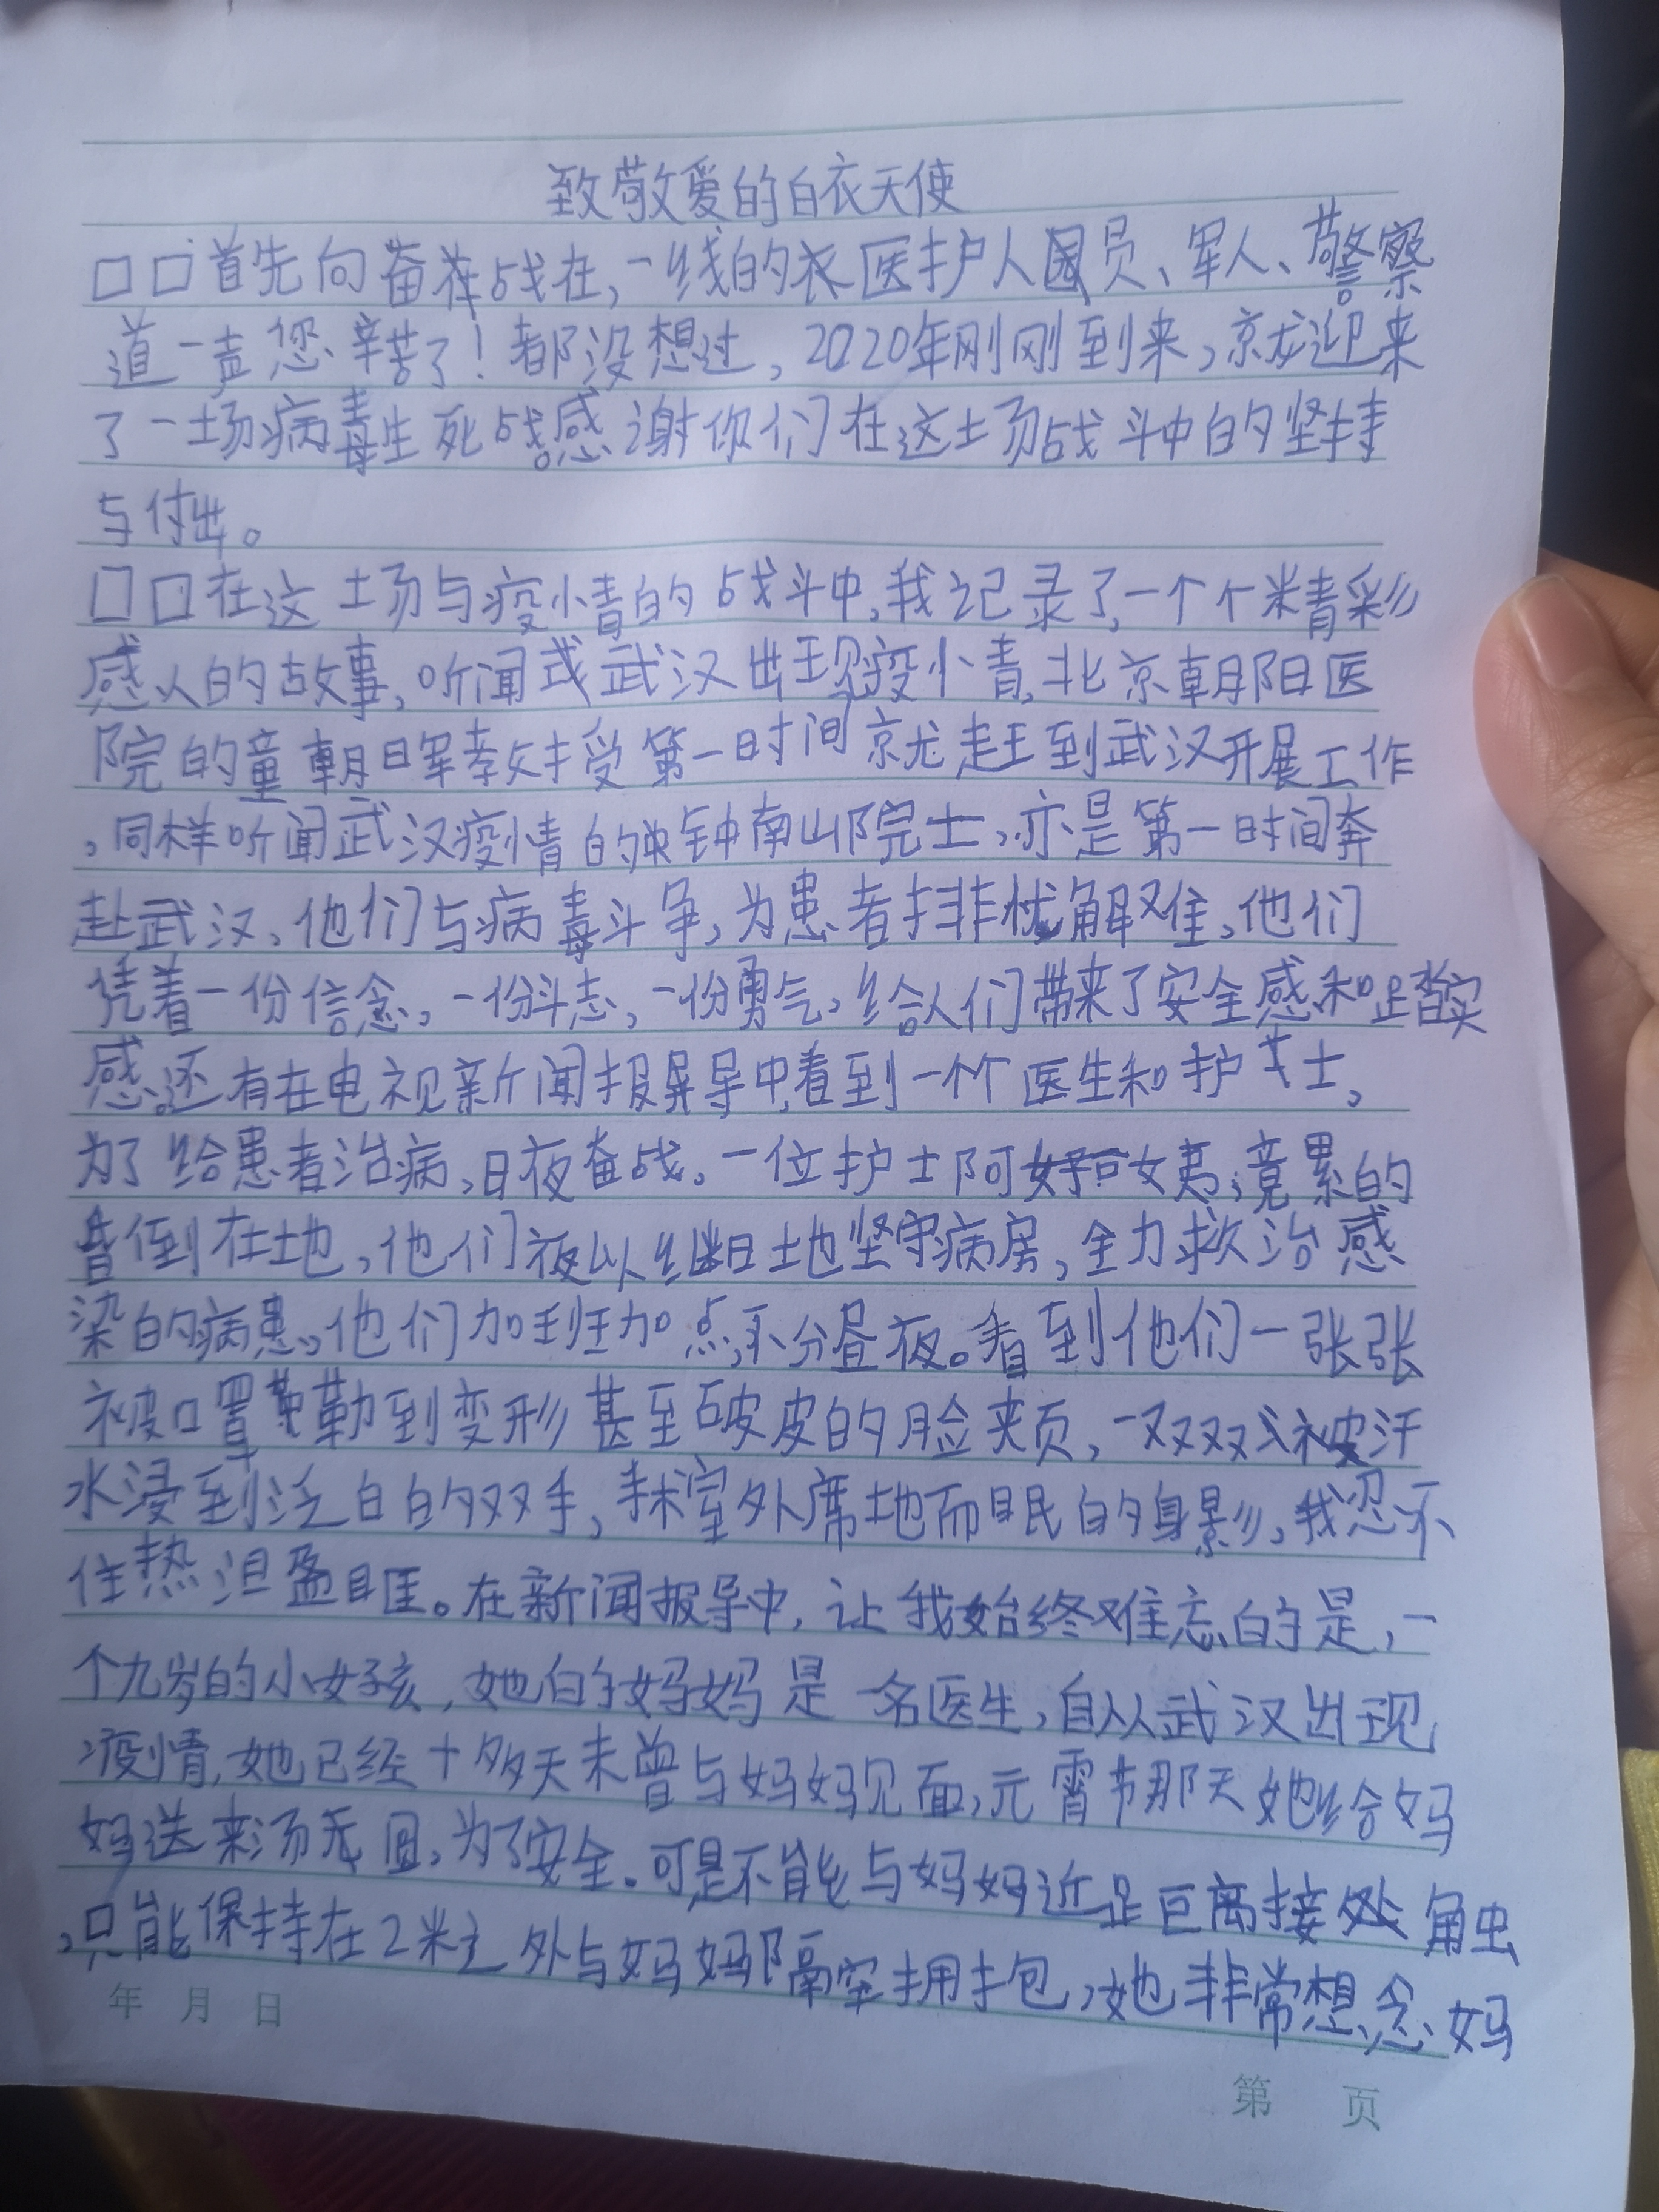 致敬爱的白衣天使
口口首先向奋战在,一线的医护人员、军人、警察
道一声您辛苦了!都没想过,2020年刚刚到来,就迎来
了一场病毒生死战。感谢你们在这场战斗中的坚持
与付出。
口口在这场与疫情的战斗中,我记录了,一个个精彩
感人的故事,听闻武汉出现疫情,北京朝阳医
院的童朝晖教授第一时间就赶到武汉开展工作
,同样听闻武汉疫情的钟南山院士,亦是第一时间奔
赴武汉,他们与病毒斗争,为患者排忧解难,他们
凭着一份信念,一份斗志,一份勇气,给人们带来了安全感和踏实
感。还有在电视新闻报导中,看到一个个医生和护士,
为了给患者治病,日夜奋战,一位护士阿姨,竟累的
昏倒在地,他们夜以继日地坚守病房,全力救治感
染的病患,他们加班加点,不分昼夜。看到他们一张张
被口罩勒到变形甚至破皮的脸颊,一双双被汗
水浸到泛白的双手,手术室外席地而眠的身影,我忍不
住热泪盈眶。在新闻报导中,让我始终难忘的是,一
个九岁的小女孩,她的妈妈是一名医生,自从武汉出现
疫情,她已经十多天未曾与妈妈见面,元宵节那天她给妈
妈送来汤圆,为了安全。可是不能与妈妈近距离接触
,只能保持在2米之外与妈妈隔空拥抱,她非常想念妈
年 月 日
第 页